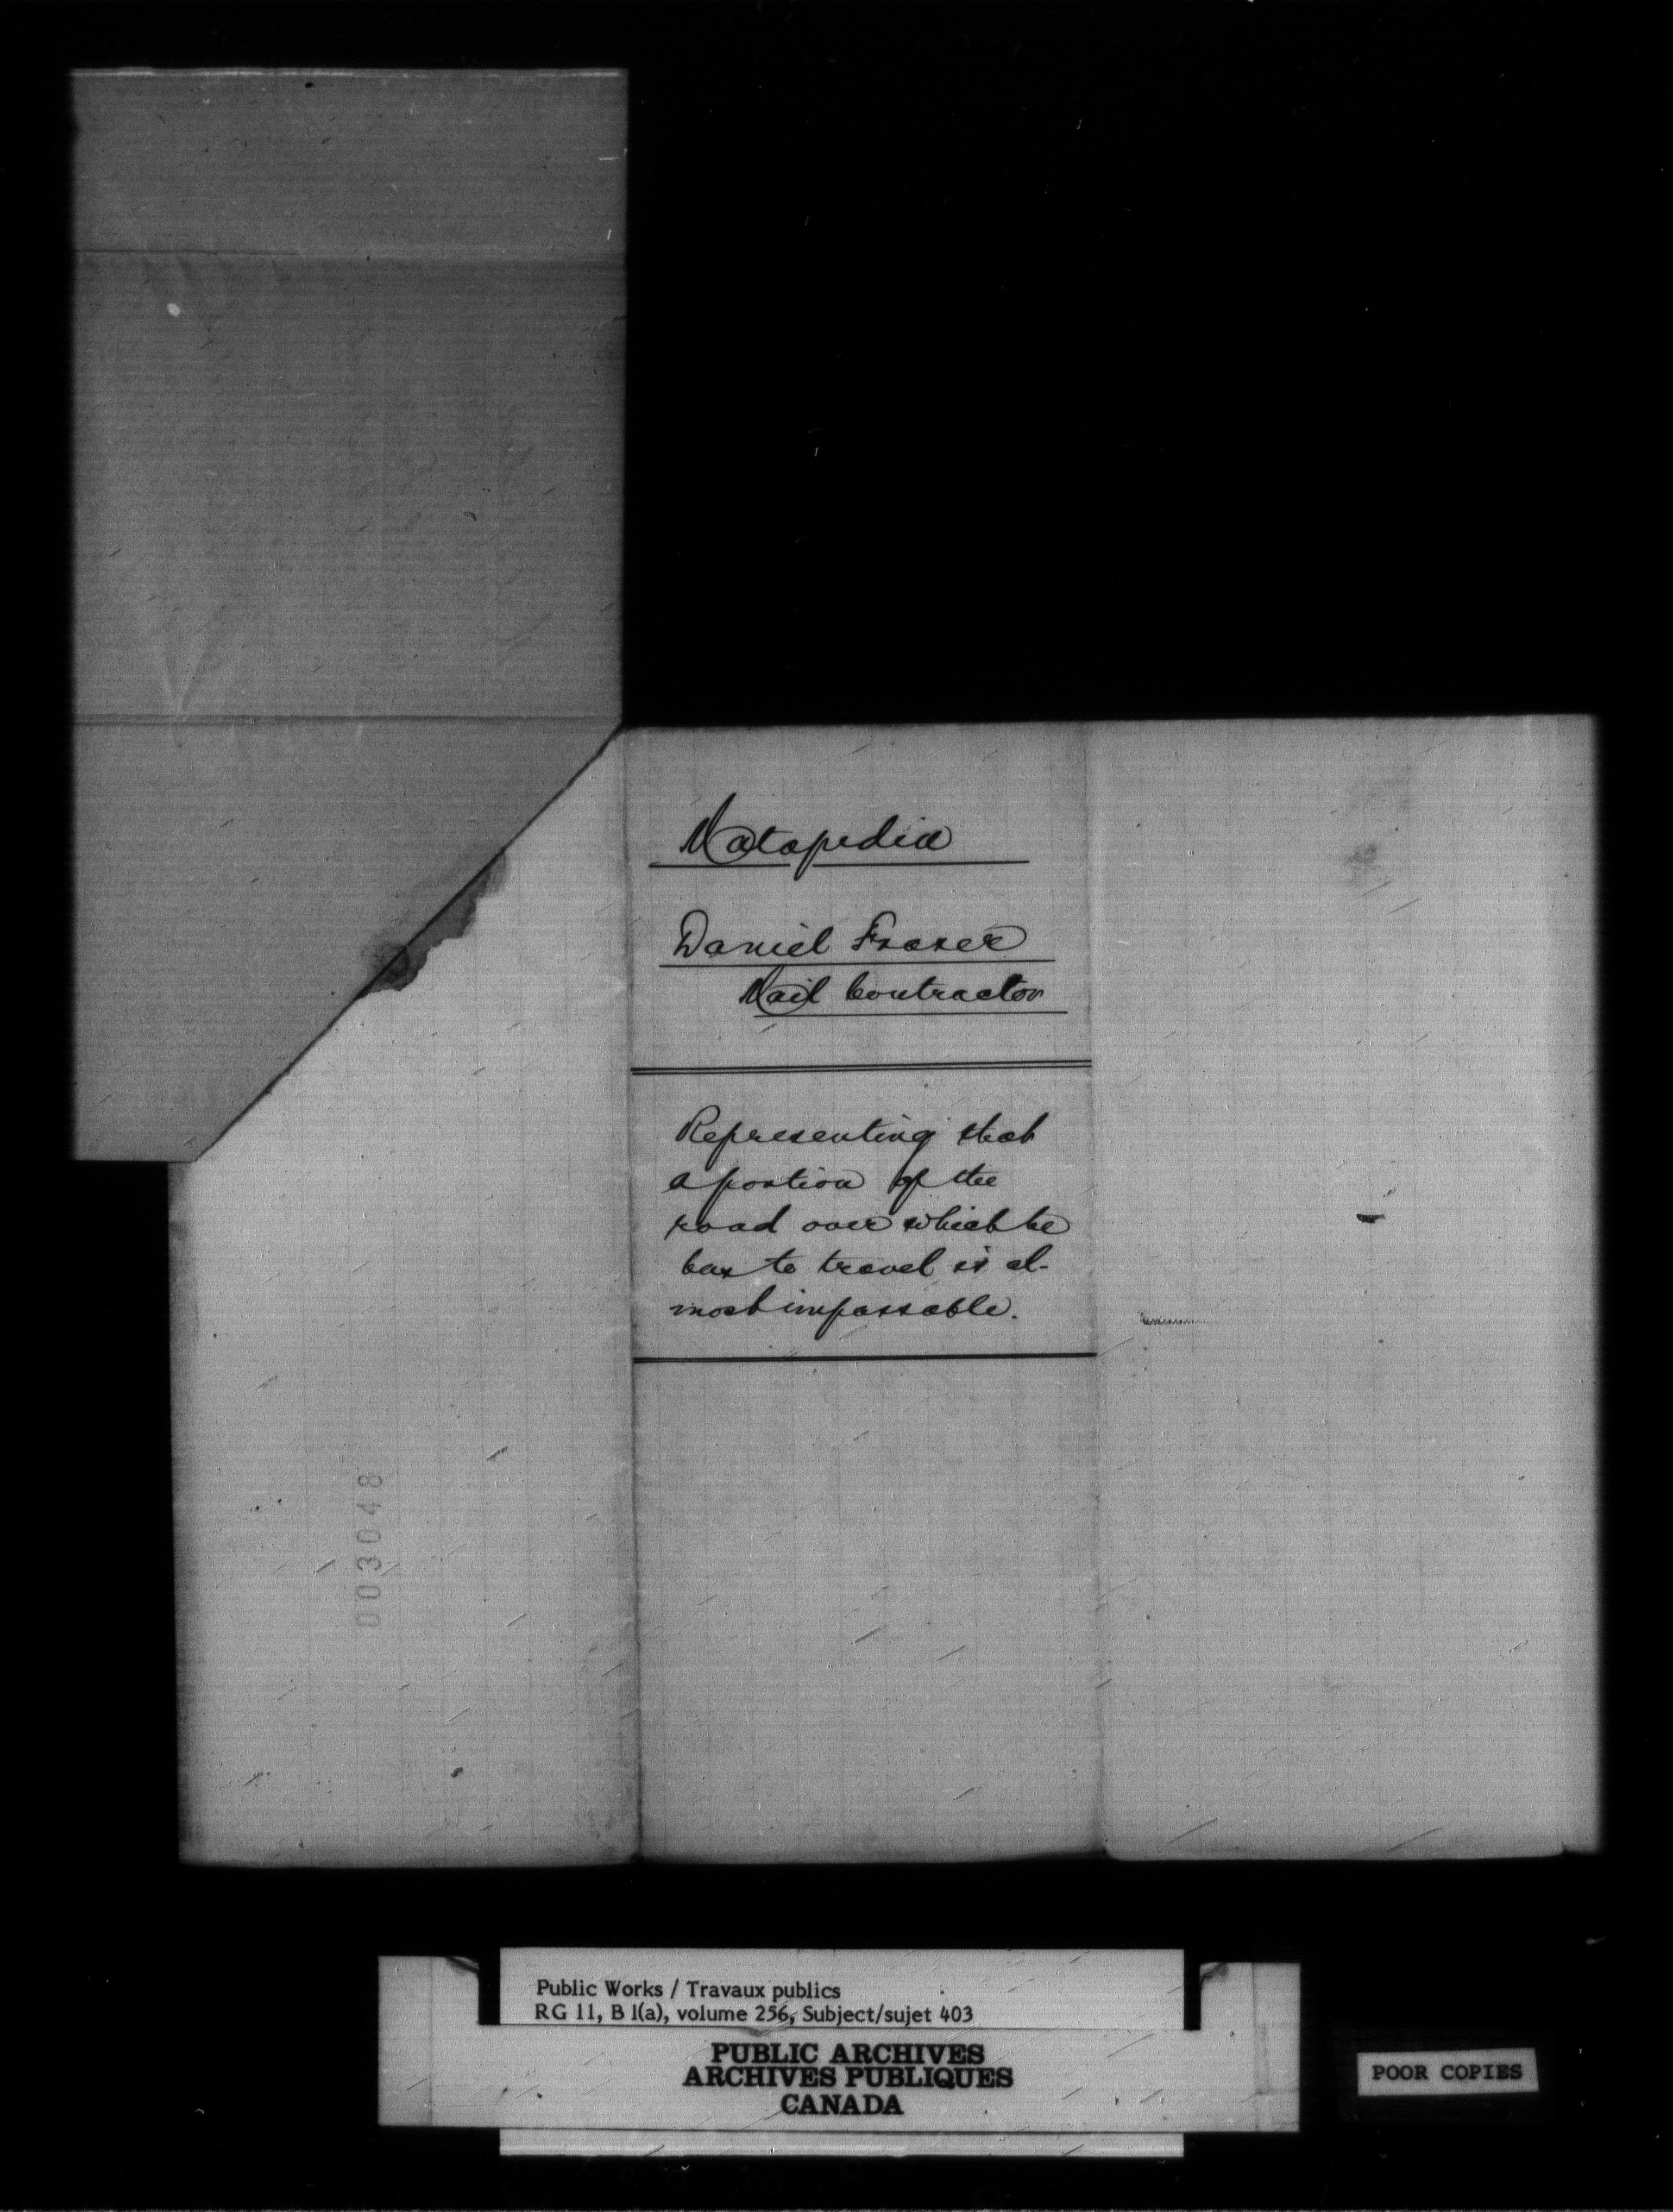 Matapedia
Daniel Fraser
Mail Contractor
Representing that
a portion of the
road over which he
has to travel is al-
most impassable.
003048
Public Works / Travaux publics
RG 11, B 1(a), volume 256, Subject/sujet 403
PUBLIC ARCHIVES
ARCHIVES PUBLIQUES
CANADA
POOR COPIES